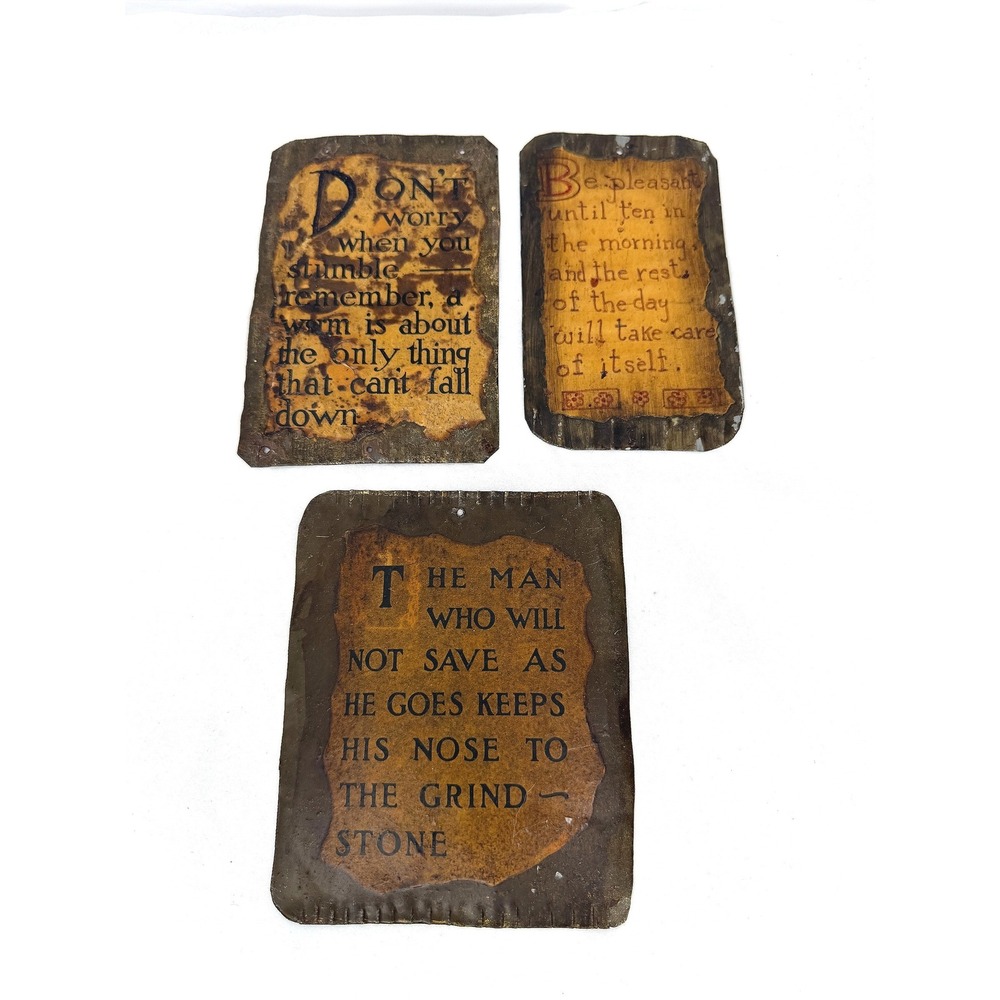 DON'T
worry
when you
stumble —
remember, a
worm is about
the only thing
that can't fall
down
Be pleasant
until ten in
the morning,
and the rest
of the day
will take care
of itself.
THE MAN
WHO WILL
NOT SAVE AS
HE GOES KEEPS
HIS NOSE TO
THE GRIND~
STONE